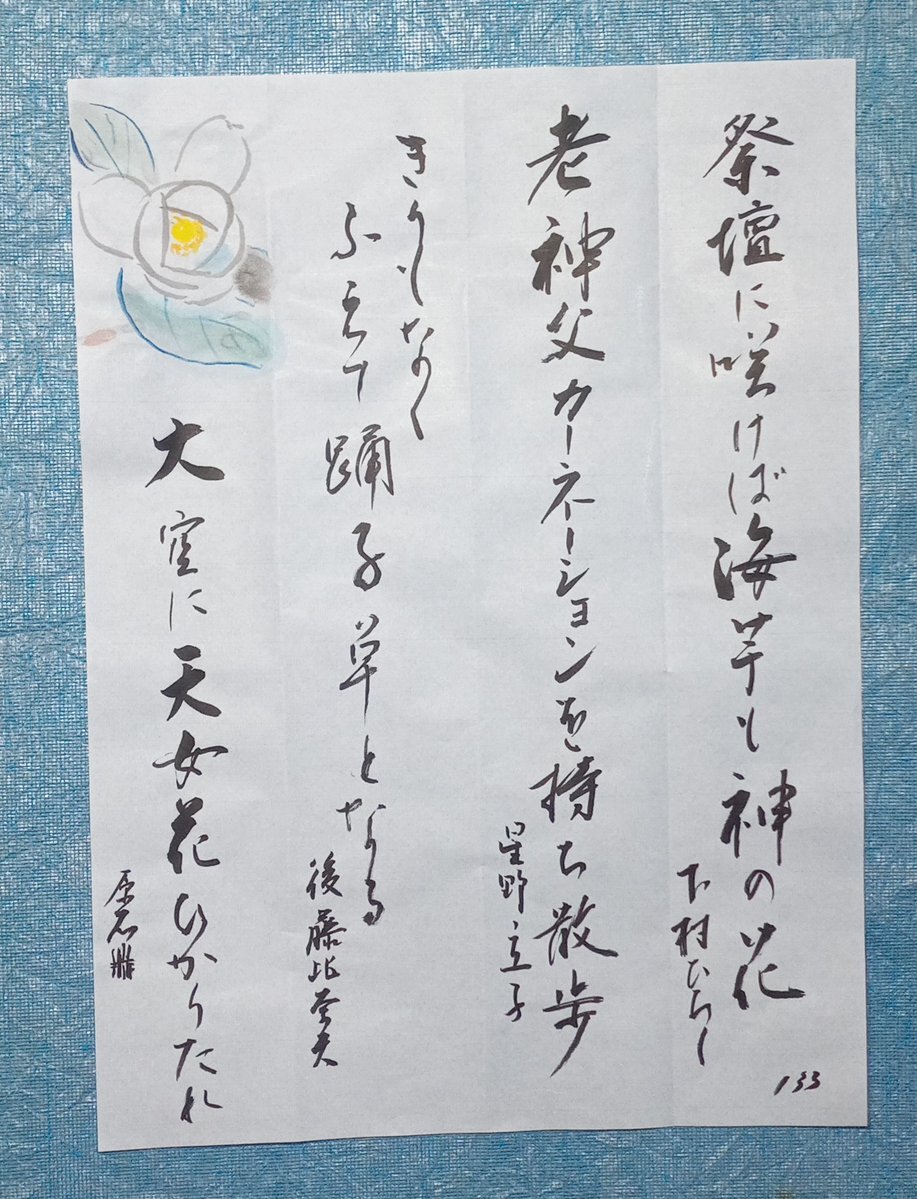 祭壇に咲けば海芋も神の花
下村ひろし
133
老神父カーネーションを持ち散歩
星野立子
きりもなく
ふえて踊子草となる
後藤比奈夫
大空に天女花ひかりたれ
原石鼎